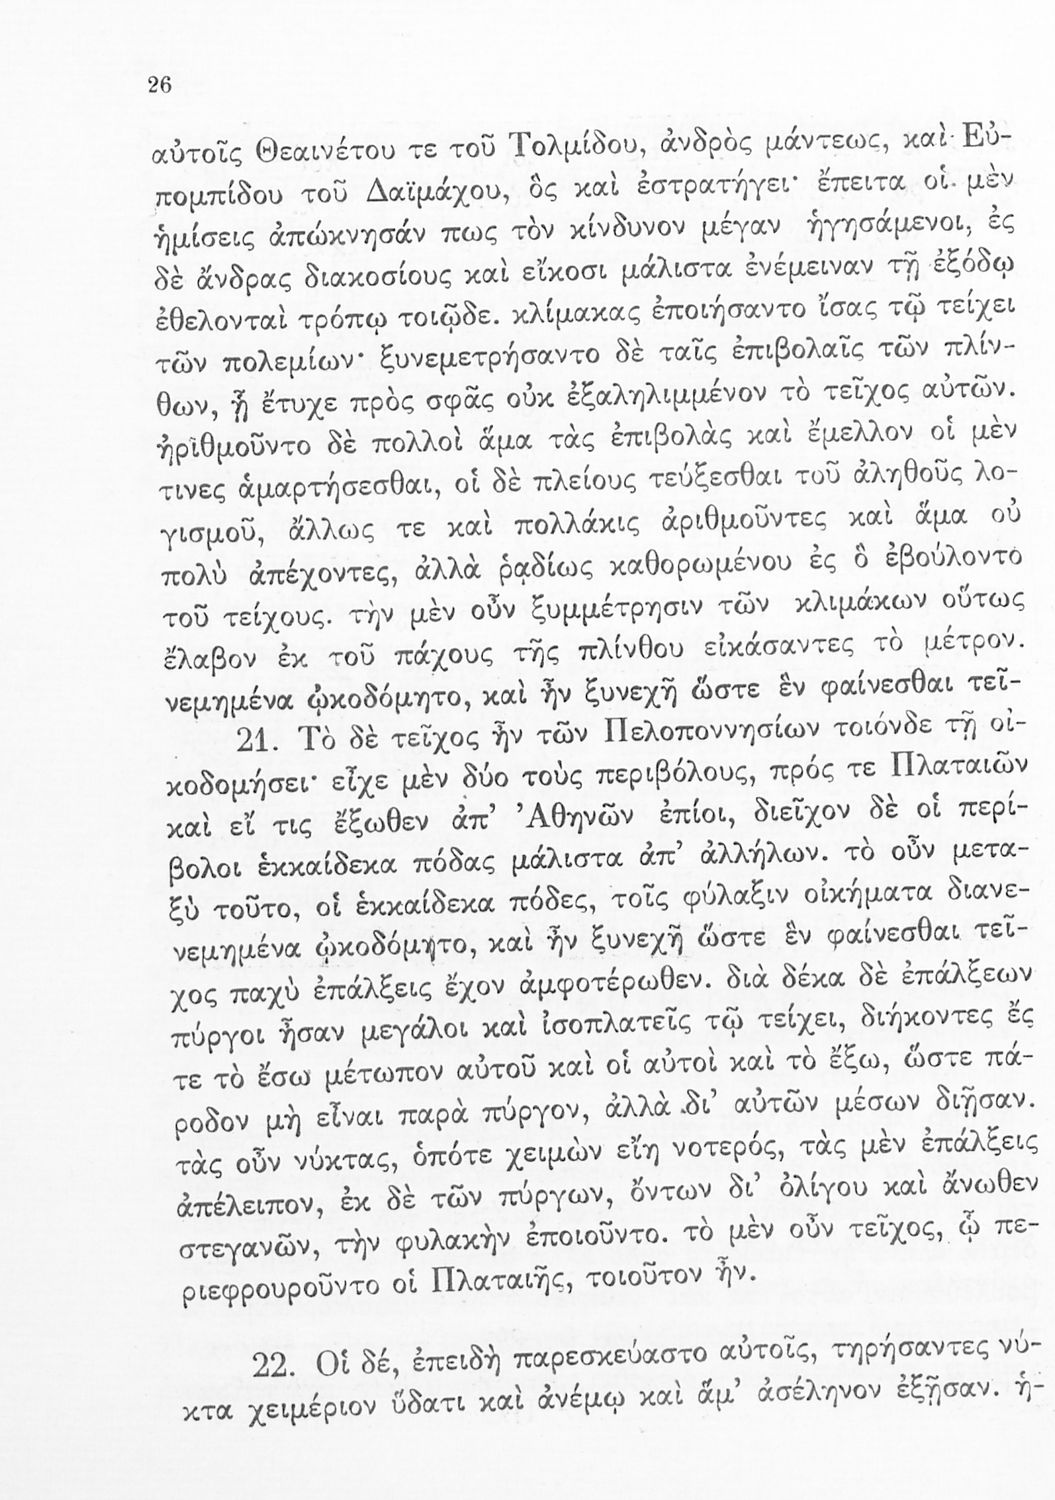 26
αὐτοῖς Θεαινέτου τε τοῦ Τολμίδου, ἀνδρὸς μάντεως, καὶ Εὐ-
πομπίδου τοῦ Δαϊμάχου, ὃς καὶ ἐστρατήγει· ἔπειτα οἱ μὲν
ἡμίσεις ἀπώκνησάν πως τὸν κίνδυνον μέγαν ἡγησάμενοι, ἐς
δὲ ἄνδρας διακοσίους καὶ εἴκοσι μάλιστα ἐνέμειναν τῇ ἐξόδῳ
ἐθελονταὶ τρόπῳ τοιῷδε. κλίμακας ἐποιήσαντο ἴσας τῷ τείχει
τῶν πολεμίων· ξυνεμετρήσαντο δὲ ταῖς ἐπιβολαῖς τῶν πλίν-
θων, ᾗ ἔτυχε πρὸς σφᾶς οὐκ ἐξαληλιμμένον τὸ τεῖχος αὐτῶν.
ἠριθμοῦντο δὲ πολλοὶ ἅμα τὰς ἐπιβολὰς καὶ ἔμελλον οἱ μὲν
τινες ἁμαρτήσεσθαι, οἱ δὲ πλείους τεύξεσθαι τοῦ ἀληθοῦς λο-
γισμοῦ, ἄλλως τε καὶ πολλάκις ἀριθμοῦντες καὶ ἅμα οὐ
πολὺ ἀπέχοντες, ἀλλὰ ῥᾳδίως καθορωμένου ἐς ὃ ἐβούλοντο
τοῦ τείχους. τὴν μὲν οὖν ξυμμέτρησιν τῶν κλιμάκων οὕτως
ἔλαβον ἐκ τοῦ πάχους τῆς πλίνθου εἰκάσαντες τὸ μέτρον.
νεμημένα ᾠκοδόμητο, καὶ ἦν ξυνεχῆ ὥστε ἓν φαίνεσθαι τεῖ-
21. Τὸ δὲ τεῖχος ἦν τῶν Πελοποννησίων τοιόνδε τῇ οἰ-
κοδομήσει· εἶχε μὲν δύο τοὺς περιβόλους, πρός τε Πλαταιῶν
καὶ εἴ τις ἔξωθεν ἀπ’ Ἀθηνῶν ἐπίοι, διεῖχον δὲ οἱ περί-
βολοι ἑκκαίδεκα πόδας μάλιστα ἀπ’ ἀλλήλων. τὸ οὖν μετα-
ξὺ τοῦτο, οἱ ἑκκαίδεκα πόδες, τοῖς φύλαξιν οἰκήματα διανε-
νεμημένα ᾠκοδόμητο, καὶ ἦν ξυνεχῆ ὥστε ἓν φαίνεσθαι τεῖ-
χος παχὺ ἐπάλξεις ἔχον ἀμφοτέρωθεν. διὰ δέκα δὲ ἐπάλξεων
πύργοι ἦσαν μεγάλοι καὶ ἰσοπλατεῖς τῷ τείχει, διήκοντες ἔς
τε τὸ ἔσω μέτωπον αὐτοῦ καὶ οἱ αὐτοὶ καὶ τὸ ἔξω, ὥστε πά-
ροδον μὴ εἶναι παρὰ πύργον, ἀλλὰ δι’ αὐτῶν μέσων διῇσαν.
τὰς οὖν νύκτας, ὁπότε χειμὼν εἴη νοτερός, τὰς μὲν ἐπάλξεις
ἀπέλειπον, ἐκ δὲ τῶν πύργων, ὄντων δι’ ὀλίγου καὶ ἄνωθεν
στεγανῶν, τὴν φυλακὴν ἐποιοῦντο. τὸ μὲν οὖν τεῖχος, ᾧ πε-
ριεφρουροῦντο οἱ Πλαταιῆς, τοιοῦτον ἦν.
22. Οἱ δέ, ἐπειδὴ παρεσκεύαστο αὐτοῖς, τηρήσαντες νύ-
κτα χειμέριον ὕδατι καὶ ἀνέμῳ καὶ ἅμ’ ἀσέληνον ἐξῇσαν. ἡ-